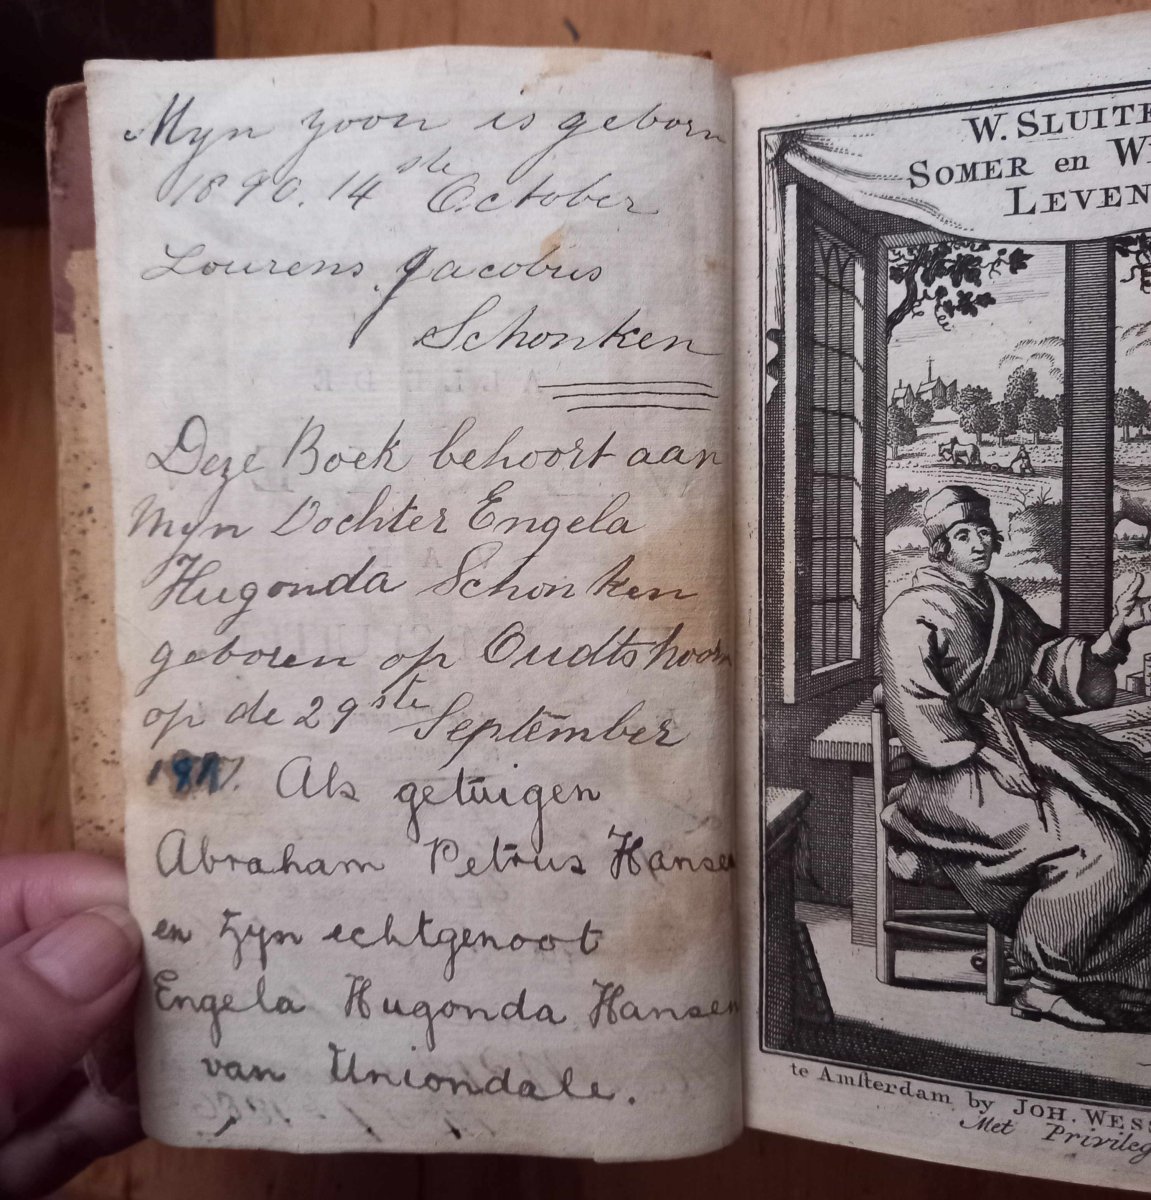 Myn zoon is geborn
1890. 14 ste October
Lourens Jacobus
Schonken
Deze Boek behoort aan
Myn Dochter Engela
Hugonda Schonken
geboren op Oudtshoorn
op de 29 ste September
Als getuigen
Abraham Petrus Hansen
en Zyn echtgenoot
Engela Hugonda Hansen
van Uniondale.
W. SLUITE
SOMER en W
LEVEN
te Amsterdam by JOH. WESS
Met Privileg